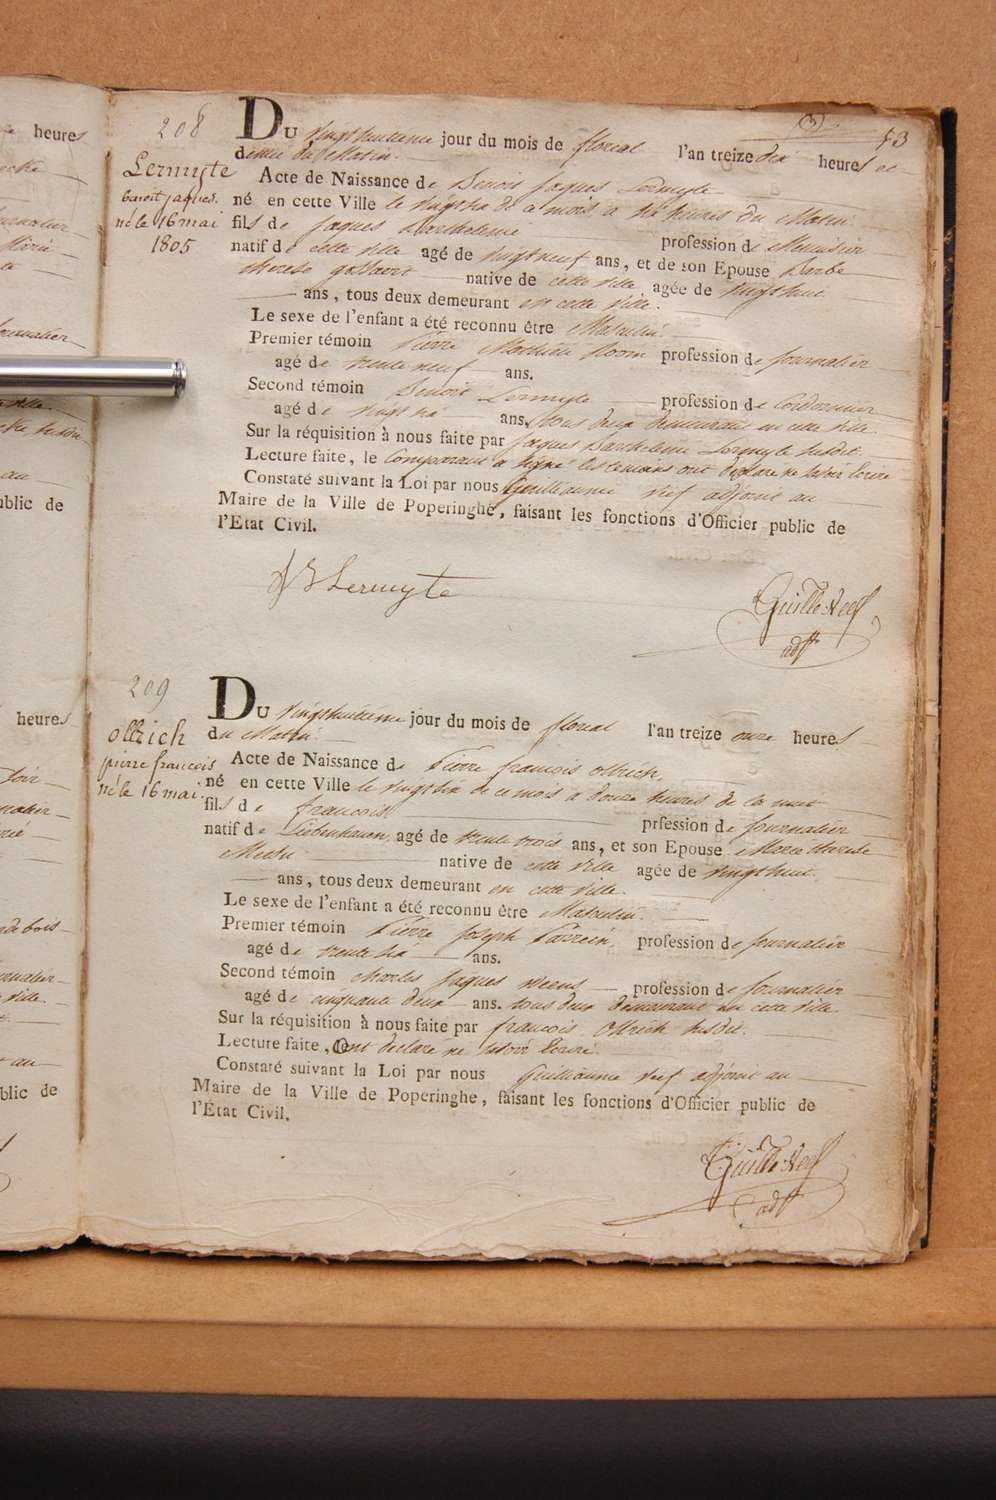 heures
ublic de
heures
blic de
53
208
Lermyte
benoit jaques.
né le 16 mai
1805
Du vingthuitieme jour du mois de floreal l'an treize dix heures et
demie du Matin.
Acte de Naissance de Benoit Jaques Lermyte
né en cette Ville le vingtsix de ce mois a six heures du Matin
fils de Jaques Barthelemi profession de Menuisier
natif de cette ville agé de vingtneuf ans, et de son Epouse Barbe
therese native de cette ville agée de vingthuit
ans, tous deux demeurant en cette ville.
Le sexe de l'enfant a été reconnu être Masculin
Premier témoin Pierre Mathieu profession de Journalier
agé de trente neuf ans.
Second témoin Benoit Lermyte profession de Cordonnier
agé de ans, tous deux demeurant en cette ville
Sur la réquisition à nous faite par Jaques Barthelemi Lermyte susdit.
Lecture faite, le Comparant a signé les temoins ont declaré ne savoir Ecrire
Constaté suivant la Loi par nous Guilliaume Neef adjoint au
Maire de la Ville de Poperinghe, faisant les fonctions d'Officier public de
l'Etat Civil.
JB Lermyte
Guille. Neef
adjt
209
ollrich
pierre francois
né le 16 mai.
Du vingthuitieme jour du mois de floreal l'an treize onze heures
du Matin.
Acte de Naissance de Pierre francois ollrich.
né en cette Ville le vingtsix de ce mois a douze heures de la nuit
fils de francois prfession de Journalier
natif de agé de trente trois ans, et son Epouse Marie therese
native de cette ville agée de vingthuit
ans, tous deux demeurant en cette ville.
Le sexe de l'enfant a été reconnu être Masculin.
Premier témoin Pierre Joseph profession de Journalier
agé de trente six ans.
Second témoin Charles Jaques Weens profession de Journalier
agé de cinquante deux ans. tous deux demeurant en cette ville
Sur la réquisition à nous faite par francois Ollrich susdit.
Lecture faite, Ont declaré ne savoir Ecrire.
Constaté suivant la Loi par nous Guilliaume Neef adjoint au
Maire de la Ville de Poperinghe, faisant les fonctions d'Officier public de
l'Etat Civil.
Guille. Neef
adjt